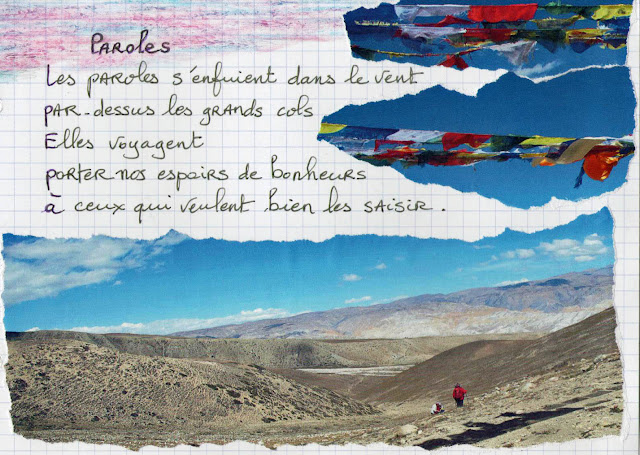 Paroles
Les paroles s'enfuient dans le vent
par-dessus les grands cols
Elles voyagent
porter nos espoirs de bonheurs
à ceux qui veulent bien les saisir.